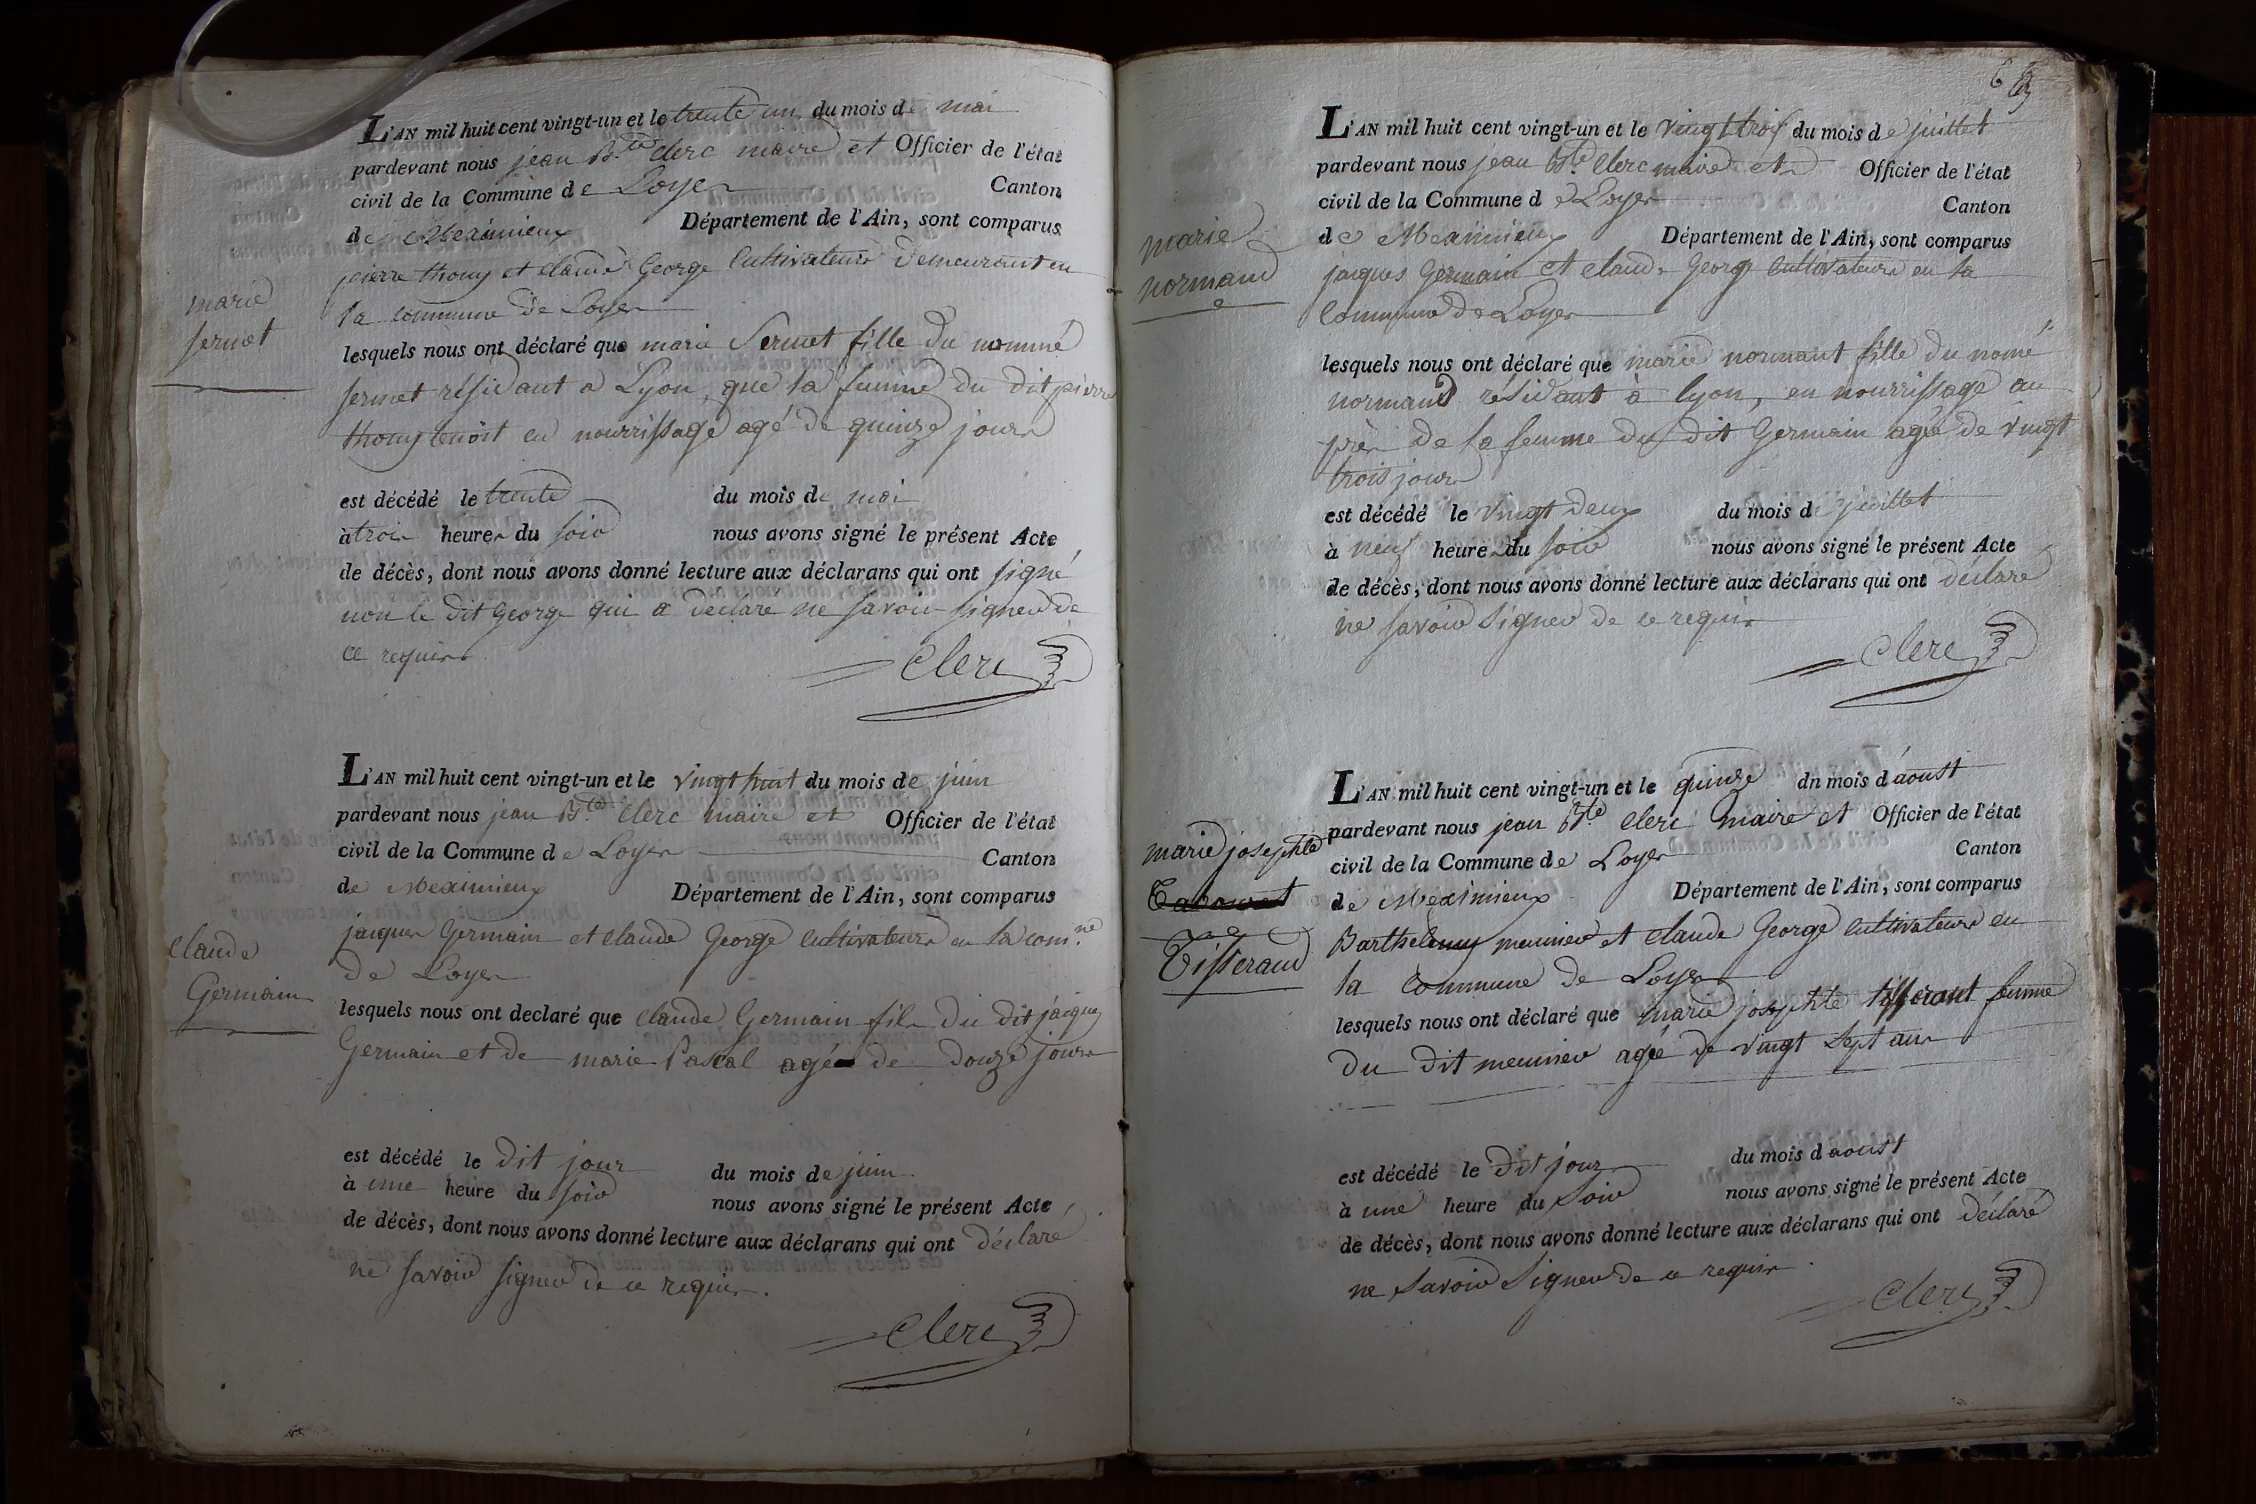 L'AN mil huit cent vingt-un et le trente un du mois de mai
pardevant nous jean B.te Clerc maire et Officier de l'état
civil de la Commune de Loyes Canton
de Meximieux Département de l'Ain, sont comparus
pierre thouy et claude George Cultivateurs demeurant en
la commune de Loyes
marie
sermet
lesquels nous ont déclaré que marie Sermet fille du nommé
sermet résidant a Lyon, que la femme du dit pierre
thouy tenoit en nourrissage agé de quinze jours
est décédé le trente du mois de mai
à trois heures du soir nous avons signé le présent Acte
de décès, dont nous avons donné lecture aux déclarans qui ont signé
non le dit George qui a declaré ne savoir signer de
ce requis
Clerc
L'AN mil huit cent vingt-un et le vingt huit du mois de juin
pardevant nous jean B.te Clerc maire et Officier de l'état
civil de la Commune de Loyes Canton
de Meximieux Département de l'Ain, sont comparus
jacques Germain et claude George cultivateurs en la com.ne
de Loyes
claude
Germain
lesquels nous ont declaré que claude Germain fils du dit jacques
Germain et de marie Pascal agé de douze jours
est décédé le dit jour du mois de juin
à une heure du soir nous avons signé le présent Acte
de décès, dont nous avons donné lecture aux déclarans qui ont déclaré
ne savoir signer de ce requis.
Clerc
L'AN mil huit cent vingt-un et le vingt trois du mois de juillet
pardevant nous jean B.te Clerc maire et Officier de l'état
civil de la Commune de Loyes Canton
de Meximieux Département de l'Ain, sont comparus
marie
normand
jacques Germain et claude George cultivateurs en la
Commune de Loyes
lesquels nous ont déclaré que marie normant fille du nomé
normand résidant à lyon, en nourrissage au
près de la femme du dit Germain agée de vingt
trois jours
est décédé le vingt deux du mois de juillet
à neuf heures du soir nous avons signé le présent Acte
de décès, dont nous avons donné lecture aux déclarans qui ont déclaré
ne savoir signer de ce requis
Clerc
L'AN mil huit cent vingt-un et le quinze dn mois d'aoust
pardevant nous jean B.te Clerc maire et Officier de l'état
civil de la Commune de Loyes Canton
de Meximieux Département de l'Ain, sont comparus
marie josephte
Tisserand
Barthelemy meunier et claude George cultivateurs en
la Commune de Loyes
lesquels nous ont déclaré que marie josephte tisserant femme
du dit meunier agée de vingt sept ans
est décédé le dit jour du mois d'aoust
à une heure du soir nous avons signé le présent Acte
de décès, dont nous avons donné lecture aux déclarans qui ont déclaré
ne savoir signer de ce requis.
Clerc